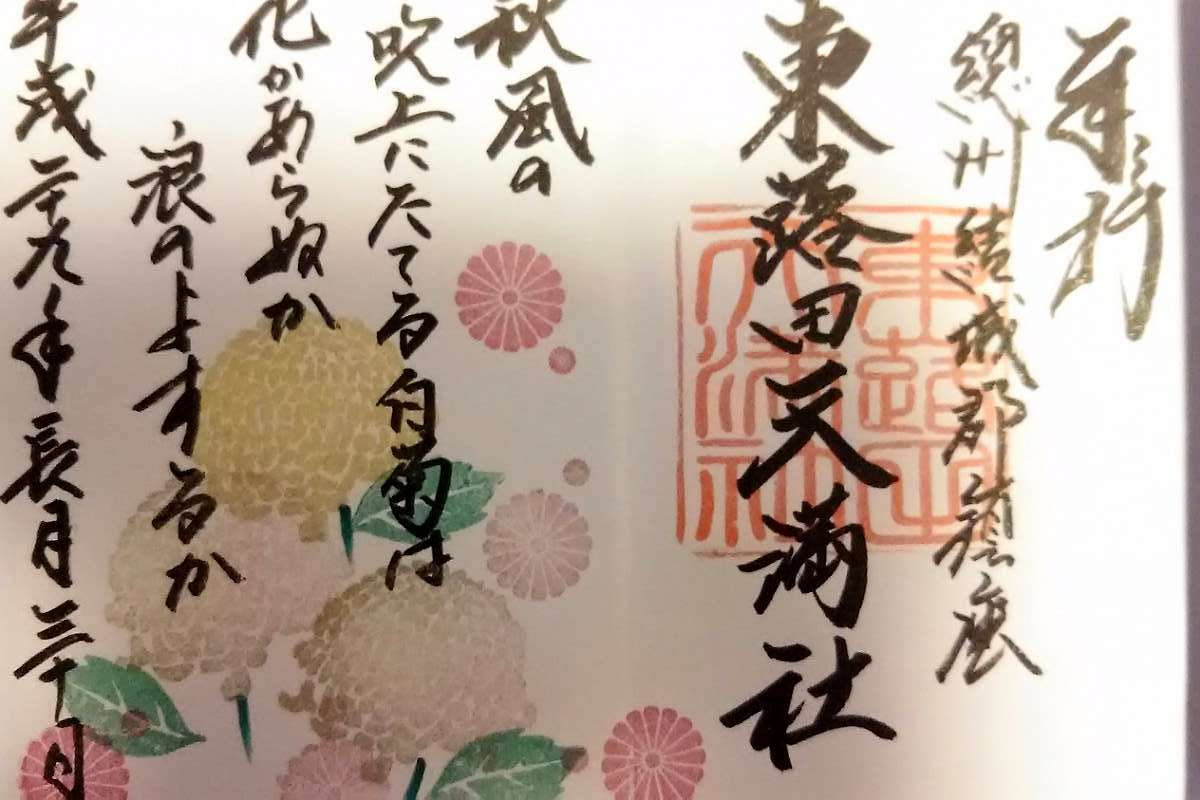 奉拝
總州結城郡鎮座
東蕗田天満社
秋風の
吹上にたてる白菊は
花かあらぬか
浪のよするか
平成二十九年長月三十日
東蕗田
天満社